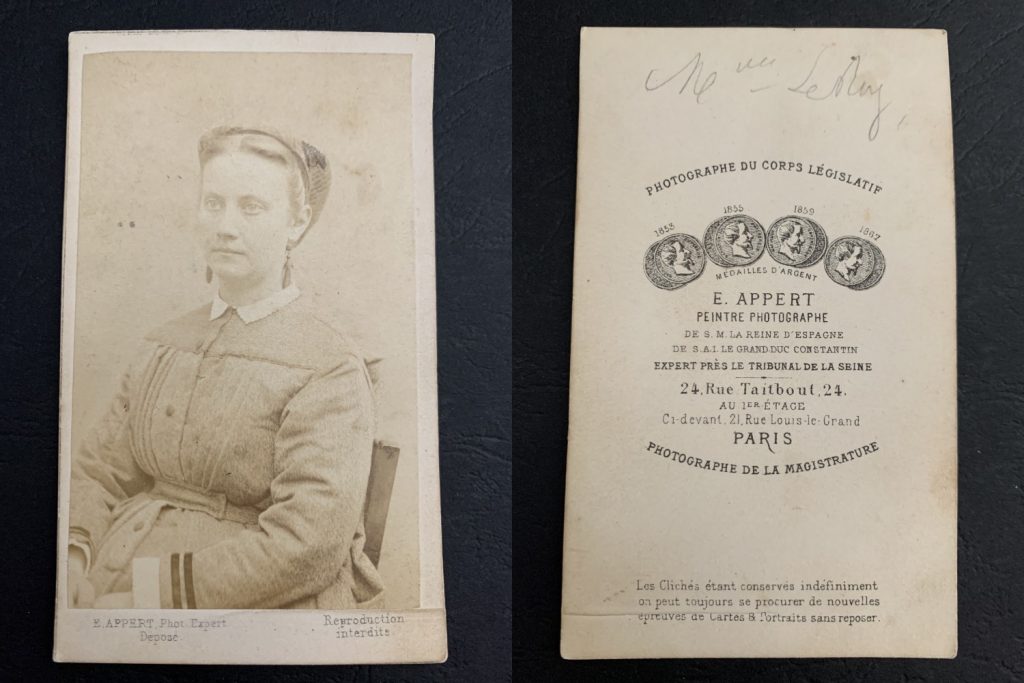 E. APPERT, Phot. Expert
Déposé.
Reproduction
interdits.
Mme Le Roy
PHOTOGRAPHE DU CORPS LÉGISLATIF
1853 1855 1859 1867
MÉDAILLES D'ARGENT
E. APPERT
PEINTRE PHOTOGRAPHE
DE S. M. LA REINE D'ESPAGNE
DE S.A.I. LE GRAND-DUC CONSTANTIN
EXPERT PRÈS LE TRIBUNAL DE LA SEINE
24, Rue Taitbout, 24.
AU 1ER ÉTAGE
Ci-devant, 21, Rue Louis-le-Grand
PARIS
PHOTOGRAPHE DE LA MAGISTRATURE
Les Clichés étant conservés indéfiniment
on peut toujours se procurer de nouvelles
épreuves de Cartes & Portraits sans reposer.